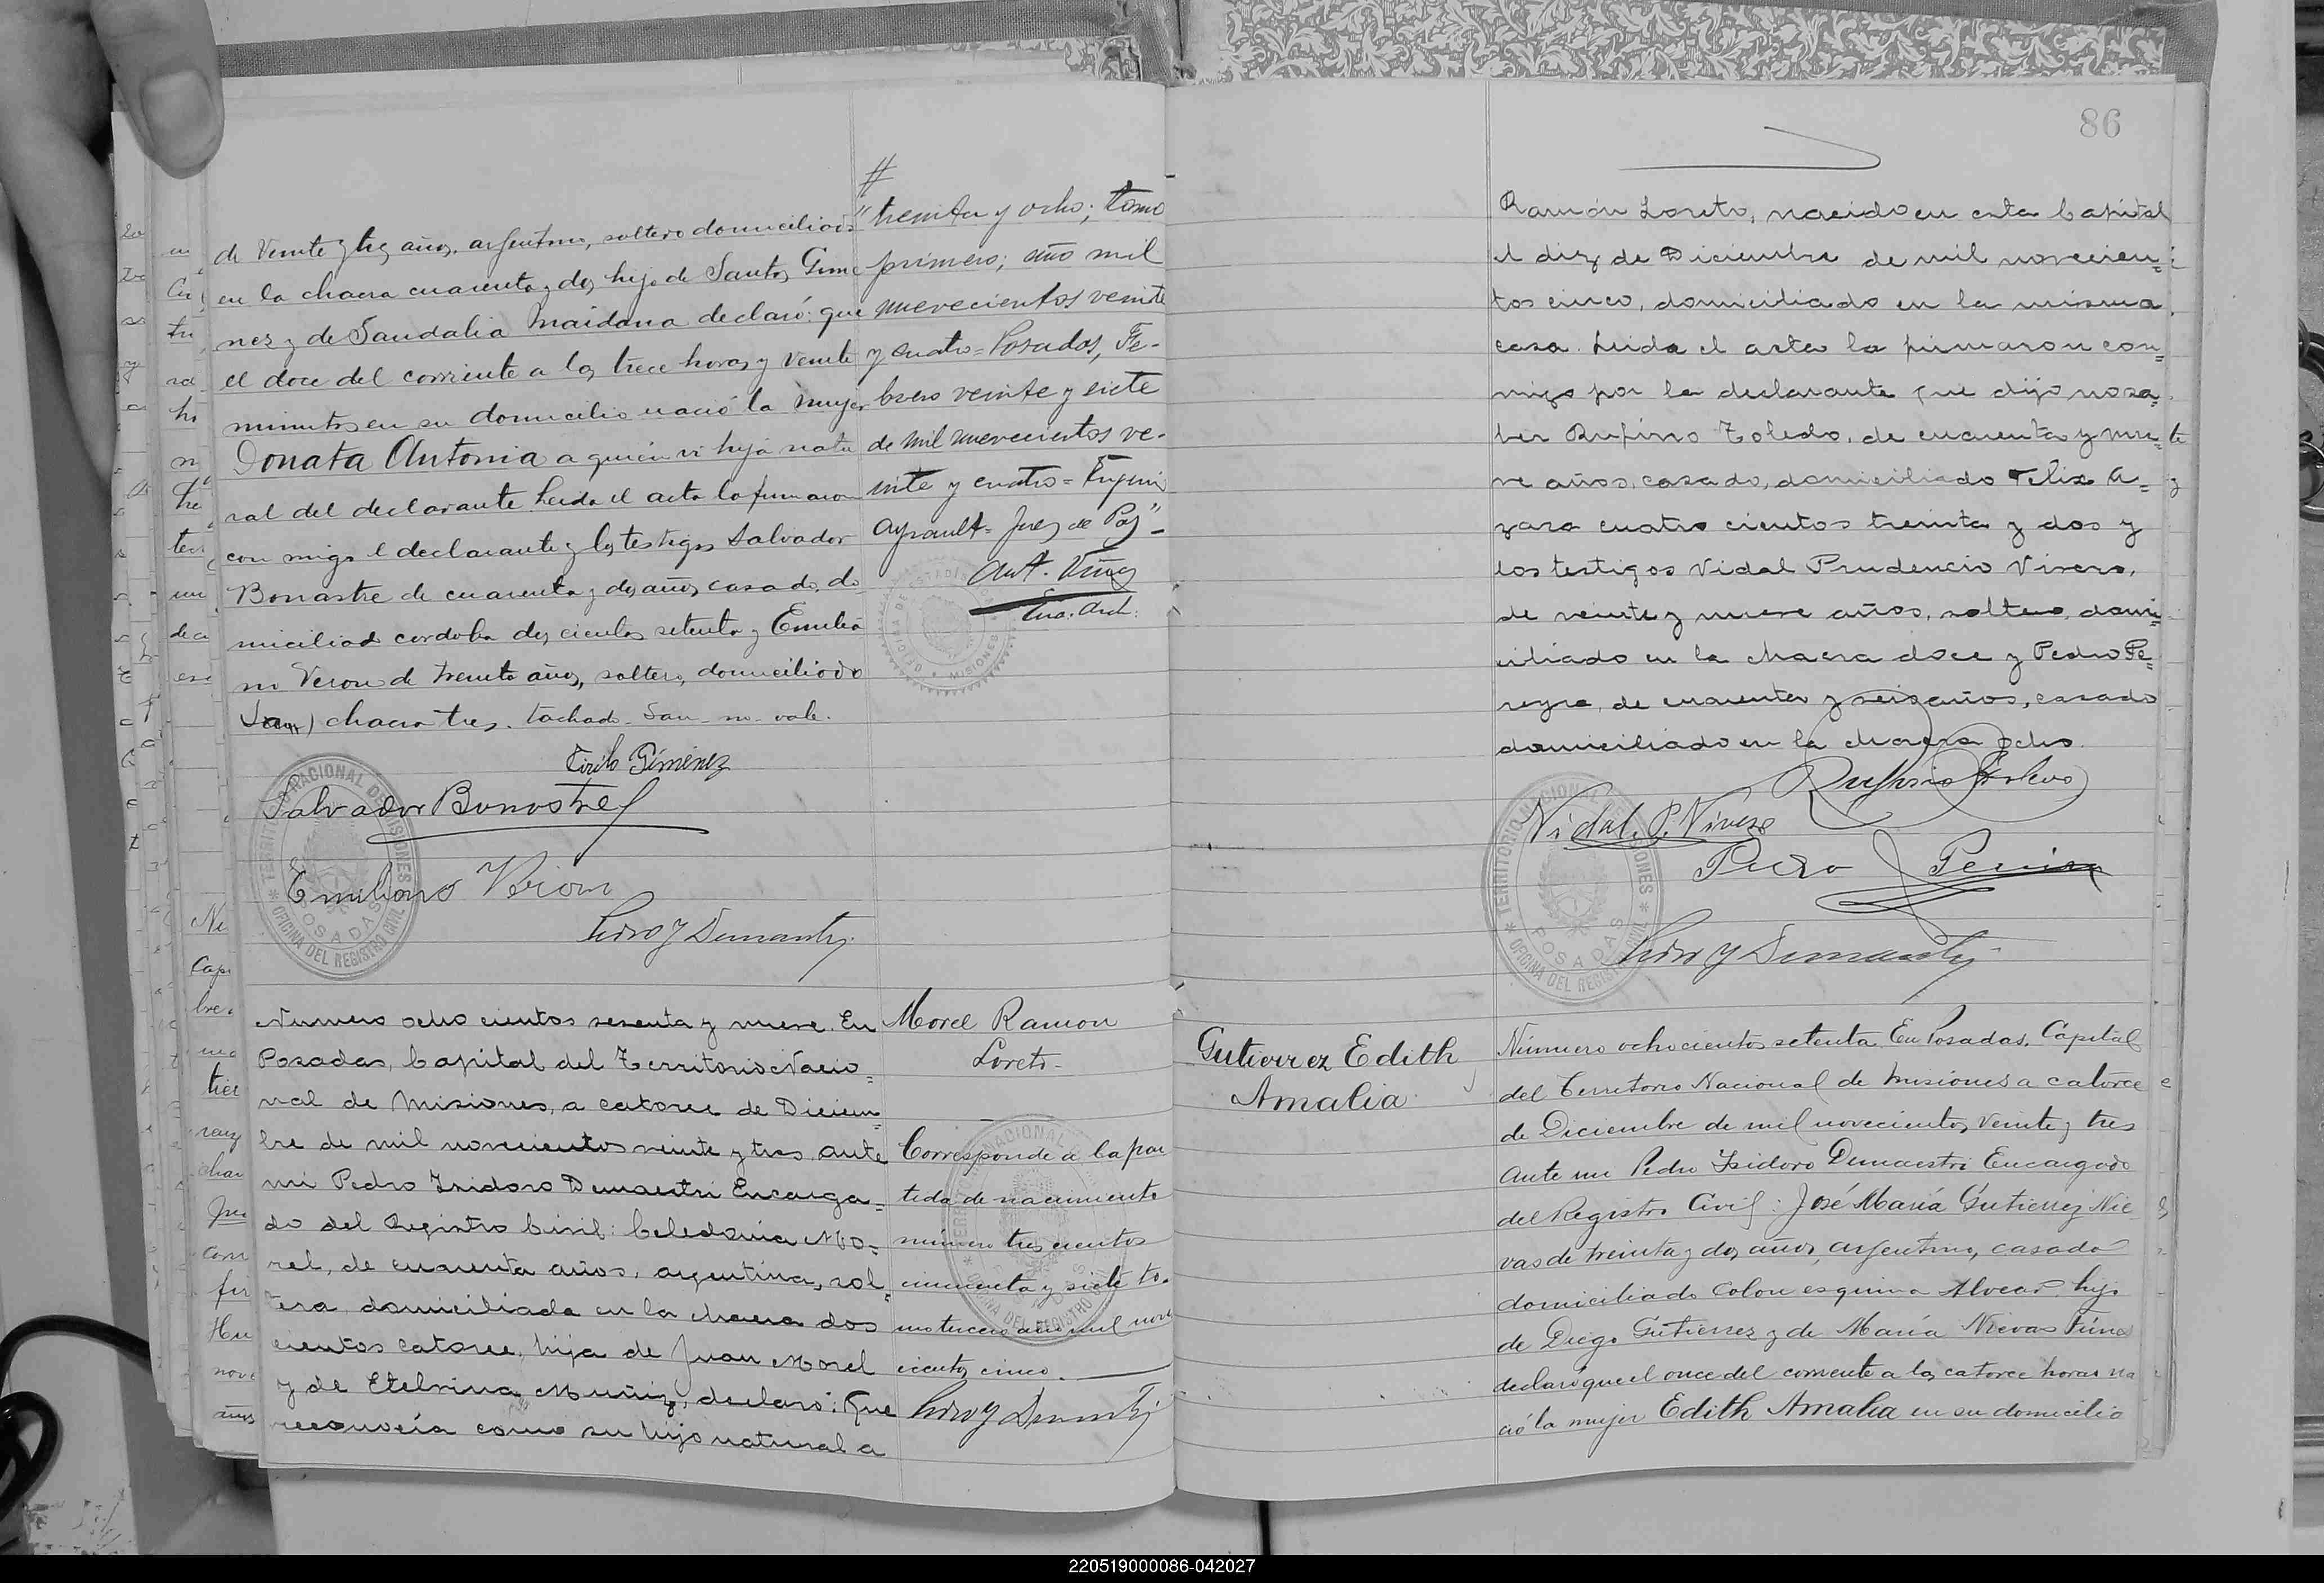 de Veinte y tres años, argentino, soltero domiciliado
en la chacra cuarenta y dos hijo de Santos Gime
nez y de Sandalia Maidana declaró: que
el doce del corriente a las trece horas y veinte
minutos en su domicilio nació la mujer
Donata Antonia a quien vi hija natu
ral del declarante Leida el acta la firmaron
con migo el declarante y los testigos Salvador
Bonastre de cuarenta y dos años, casado, do
miciliado cordoba dos cientos setenta y Emilia
no Veron de treinta años, soltero, domiciliado
(San) chacra tres. tachado-San-no-vale.
Cirilo Giménez
Salvador Bonastre
Emiliano Veron
#
"treinta y ocho; tomo
primero; año mil
nuevecientos veinte
y cuatro = Posadas, Fe-
brero veinte y siete
de mil nuevecientos ve-
inte y cuatro =
Ayrault = Juez de Paz" -
TERRITORIO NACIONAL DE MISIONES
POSADAS
OFICINA DEL REGISTRO CIVIL
Numero ocho cientos sesenta y nueve. En
Posadas, Capital del Territorio Nacio=
nal de Misiones, a catorce de Diciem
bre de mil novecientos veinte y tres ante
mi Pedro Isidoro Demaestri Encarga=
do del Registro Civil: Celedonia Mo=
rel, de cuarenta años, argentina, sol=
tera, domiciliada en la chacra dos
cientos catorce, hija de Juan Morel
y de Etelvina Muñiz, declaró: Que
reconocía como su hijo natural a
Morel Ramon
Loreto-
Corresponde a la par
tida de nacimiento
número tres cientos
cincuenta y siete to-
mo tercero año mil nove
cientos cinco.
86
Ramón Loreto, nacido en esta Capital
el diez de Diciembre de mil novecien=
tos cinco, domiciliado en la misma
casa. Leida el acta la firmaron con=
migo por la declarante que dijo no sa=
ber Rufino Toledo, de cuarenta y nue=
ve años, casado, domiciliado Felix A=
zara cuatro cientos treinta y dos y
los testigos Vidal Prudencio Vivero,
de veinte y nueve años, soltero, domi=
ciliado en la chacra doce y Pedro Pe=
reyra, de cuarenta y seis años, casado
domiciliado en la chacra ocho.
Rufino Toledo
Vidal P. Vivero
Pedro Pereira
TERRITORIO NACIONAL DE MISIONES
POSADAS
OFICINA DEL REGISTRO CIVIL
Gutierrez Edith
Amalia
Número ochocientos setenta En Posadas, Capital
del Territorio Nacional de Misiones a catorce
de Diciembre de mil novecientos, Veinte y tres
ante mi Pedro Isidoro Demaestri Encargado
del Registro Civil: José María Gutierrez Nie
vas de treinta y dos años, argentino, casado
domiciliado Colon esquina Alvear, hijo
de Diego Gutierrez y de María Nievas
declaró que el once del corriente a las catorce horas na
ció la mujer Edith Amalia en su domicilio
220519000086-042027